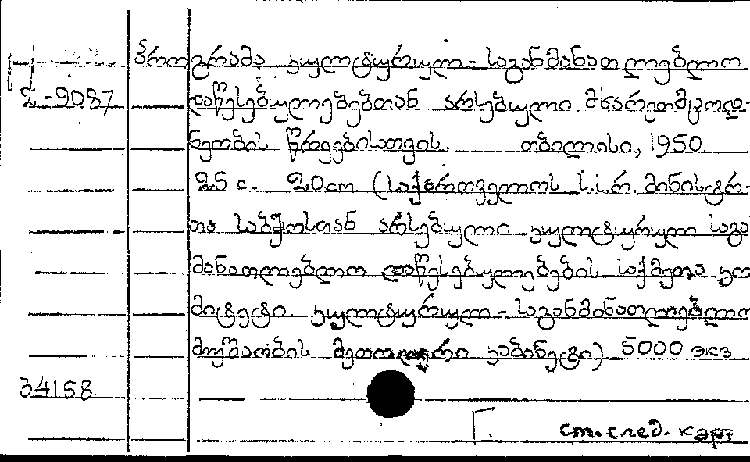 პროგრამა კულტურულ-საგანმანათლებლო
2-9087 დაწესებულებებთან არსებული მხარეთმცოდ-
ნეობის წრეებისათვის თბილისი, 1950
25 с. 20 cm (საქართველოს ს.ს.რ. მინისტრ-
თა საბჭოსთან არსებული კულტურულ საგა
მანათლებლო დაწესებულებების საქმეთა კო
მიტეტი. კულტურულ-საგანმანათლებლო
მუშაობის მეთოდური კაბინეტი) 5000 экз
34158
Г. см. след. карт